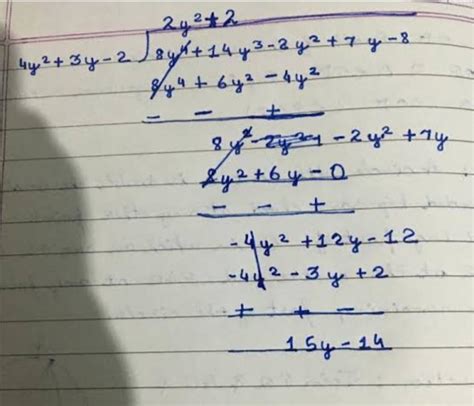 2y² + 2
4y² + 3y - 2 ) 8y⁴ + 14y³ - 2y² + 7y - 8
8y⁴ + 6y² - 4y²
- - +
8y² - 2y² - 2y² + 7y
8y² + 6y - 0
- - +
-4y² + 12y - 12
-4y² - 3y + 2
+ + -
15y - 14